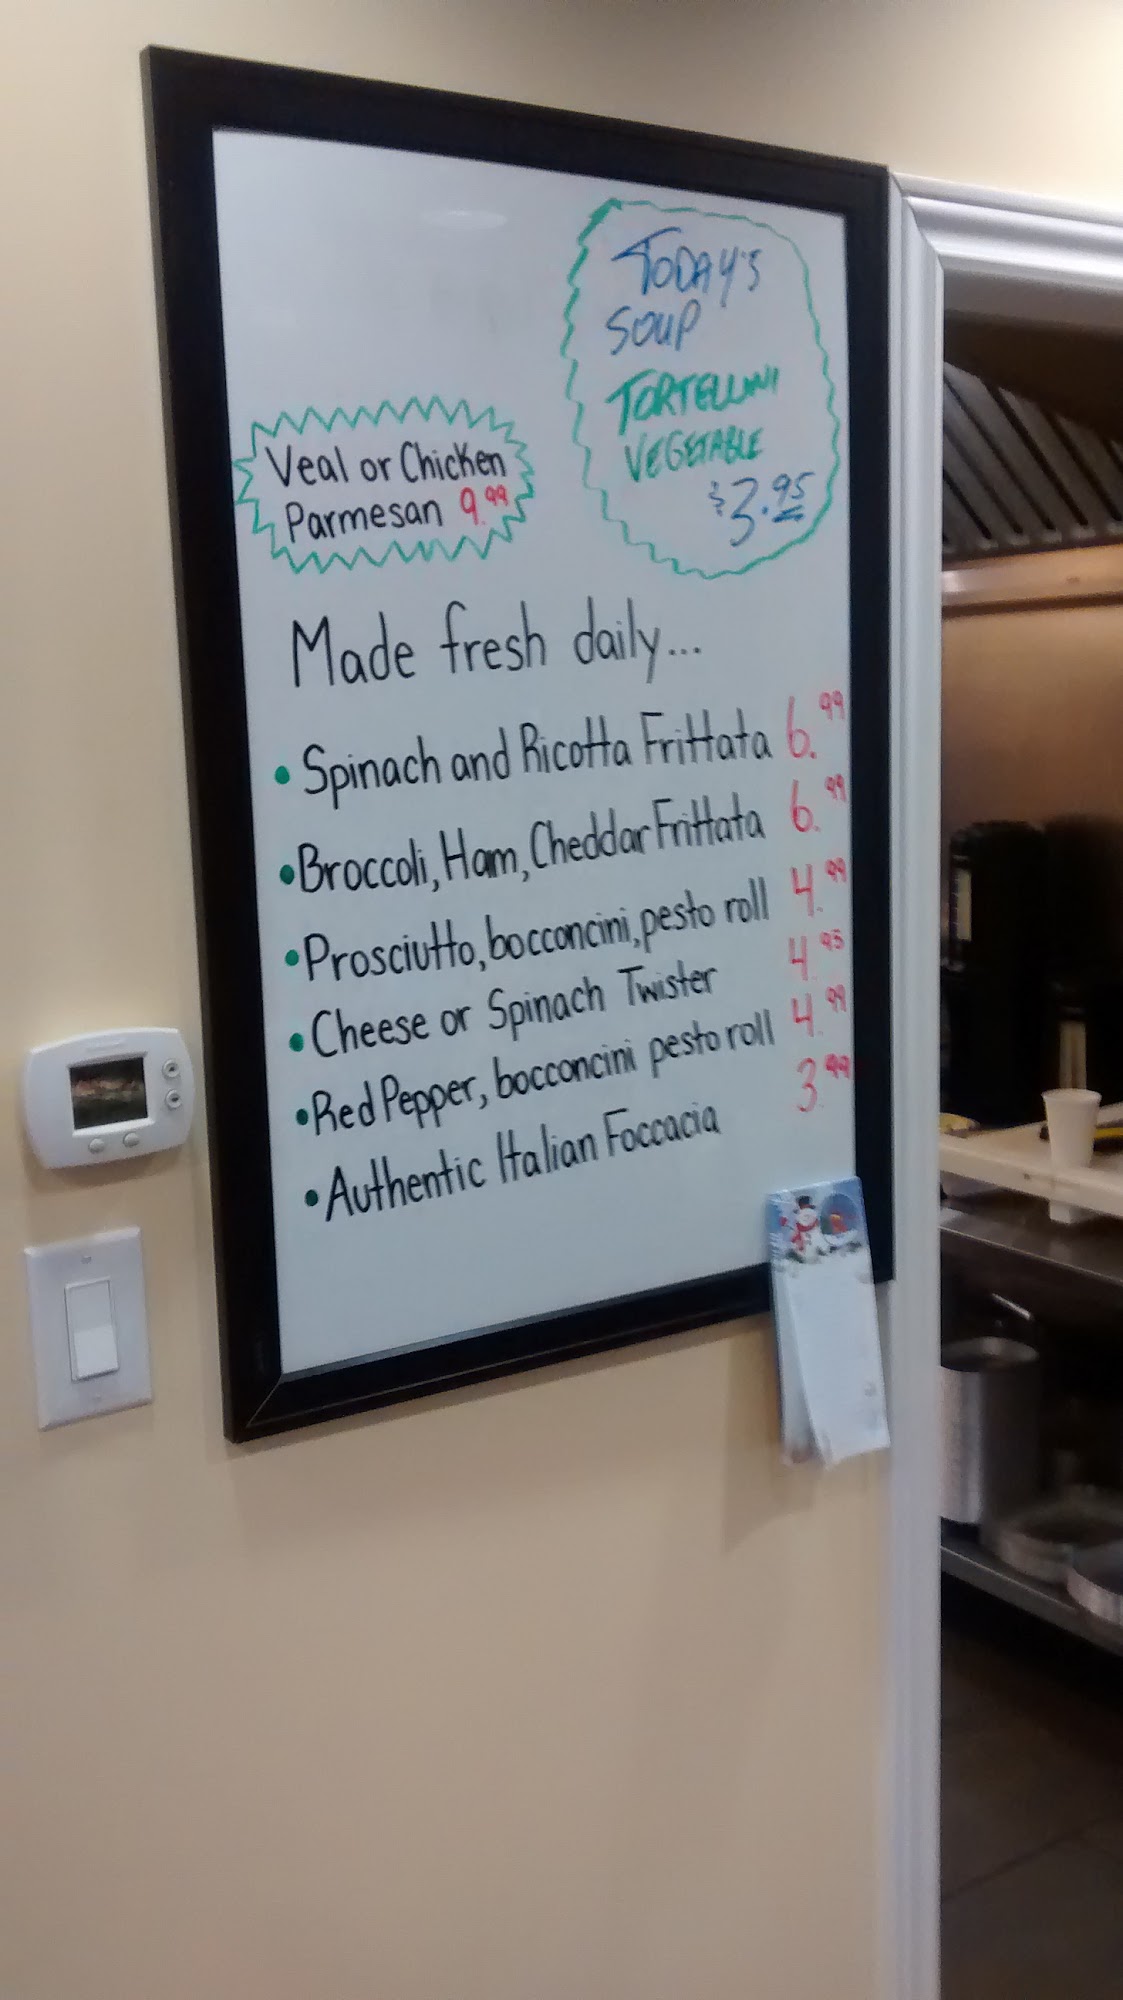 TODAY'S
SOUP
TORTELLINI
VEGETABLE
$3.95
Veal or Chicken
Parmesan 9.99
Made fresh daily...
• Spinach and Ricotta Frittata 6.99
• Broccoli, Ham, Cheddar Frittata 6.99
• Prosciutto, bocconcini, pesto roll 4.99
• Cheese or Spinach Twister 4.95
• Red Pepper, bocconcini pesto roll 4.99
• Authentic Italian Foccacia 3.99